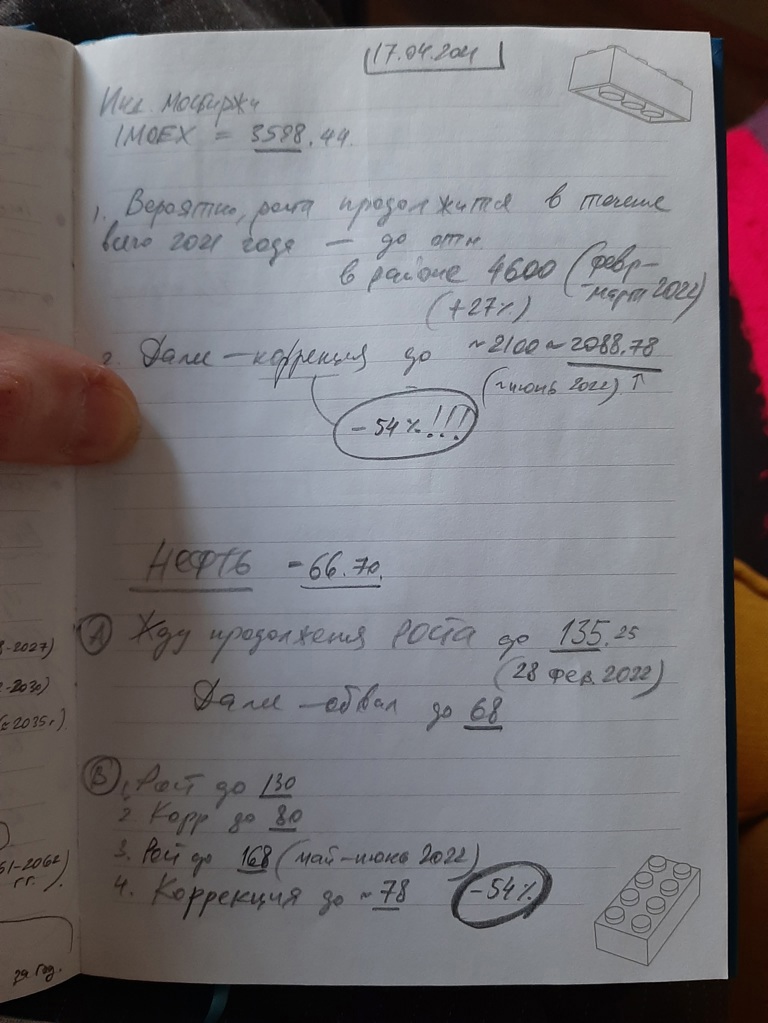 17.04.2021
Инд. Мосбиржи
IMOEX = 3588.44.
1. Вероятно, роста продолжится в течение
всего 2021 года — до отм.
в районе 4600 (февр-
-март 2022)
(+27%)
2. Далее — коррекция до ~2100 ~ 2088,78
(~июнь 2022) ↑
-54%!!!
НЕФТЬ - 66.70
А Жду продолжения роста до 135.25
(28 фев. 2022)
Далее — обвал до 68
В 1. Рост до 130
2 Корр до 80
3. Рост до 168 (май-июнь 2022)
4. Коррекция до ~78 -54%
-2027)
-2030)
2035г.)
61-2062
гг.)
год.